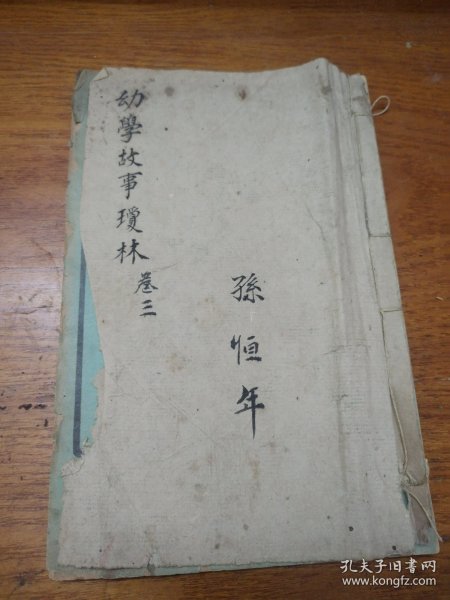 幼學故事瓊林 卷三
孫恒年
孔夫子旧书网
www.kongfz.com